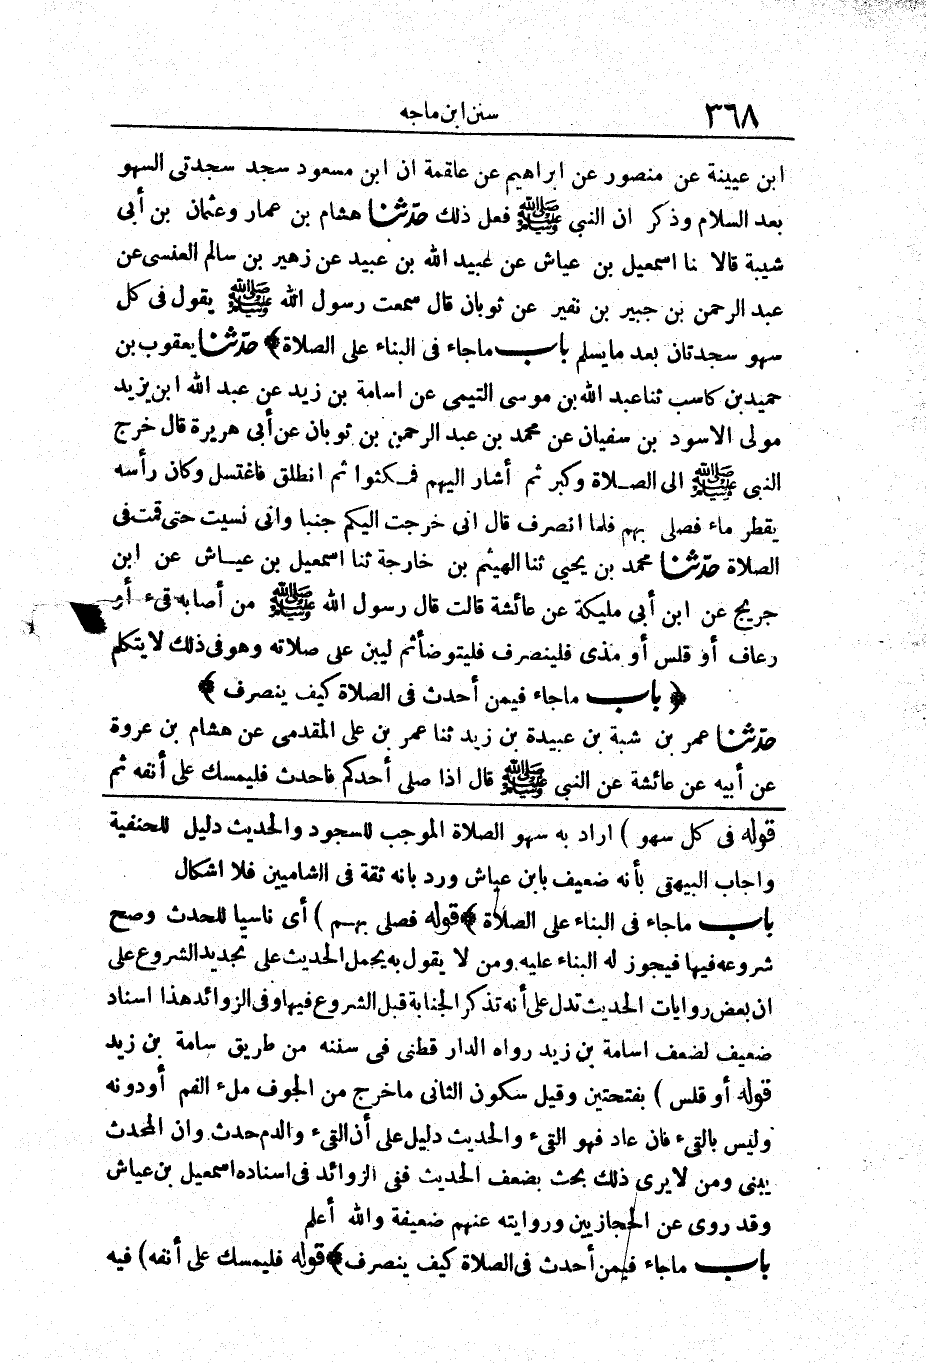 ٣٦٨ سنن ابن ماجه
ابن عيينة عن منصور عن ابراهيم عن علقمة ان ابن مسعود سجد سجدتى السهو
بعد السلام وذكر ان النبي ﷺ فعل ذلك حدّثنا هشام بن عمار وعثمان بن أبى
شيبة قالا نا اسمعيل بن عياش عن عبيد الله بن عبيد عن زهير بن سالم العنسى عن
عبد الرحمن بن جبير بن نفير عن ثوبان قال سمعت رسول الله ﷺ يقول فى كل
سهو سجدتان بعد مايسلم باب ماجاء فى البناء على الصلاة﴾ حدّثنا يعقوب بن
حميد بن كاسب ثنا عبد الله بن موسى التيمى عن اسامة بن زيد عن عبد الله ابن يزيد
مولى الاسود بن سفيان عن محمد بن عبد الرحمن بن ثوبان عن أبى هريرة قال خرج
النبى ﷺ الى الصلاة وكبر ثم أشار اليهم فمكثوا ثم انطلق فاغتسل وكان رأسه
يقطر ماء فصلى بهم فلما انصرف قال انى خرجت اليكم جنبا وانى نسيت حتى قمت فى
الصلاة حدّثنا محمد بن يحيي ثنا الهيثم بن خارجة ثنا اسمعيل بن عياش عن ابن
جريج عن ابن أبى مليكة عن عائشة قالت قال رسول الله ﷺ من أصابه قىء أو
رعاف أو قلس أو مذى فلينصرف فليتوضأ ثم ليبن على صلاته وهو فى ذلك لا يتكلم
﴿ باب ماجاء فيمن أحدث فى الصلاة كيف ينصرف ﴾
حدّثنا عمر بن شبة بن عبيدة بن زيد ثنا عمر بن على المقدمى عن هشام بن عروة
عن أبيه عن عائشة عن النبى ﷺ قال اذا صلى أحدكم فاحدث فليمسك على أنفه ثم
قوله فى كل سهو ) اراد به سهو الصلاة الموجب للسجود والحديث دليل للحنفية
واجاب البيهقى بأنه ضعيف بابن عياش ورد بانه ثقة فى الشاميين فلا اشكال
باب ماجاء فى البناء على الصلاة ﴾ قوله فصلى بهم ) أى ناسيا للحدث وصح
شروعه فيها فيجوز له البناء عليه ومن لا يقول به يحمل الحديث على تجديد الشروع على
ان بعض روايات الحديث تدل على أنه تذكر الجنابة قبل الشروع فيها وفى الزوائد هذا اسناد
ضعيف لضعف اسامة بن زيد رواه الدار قطنى فى سننه من طريق سامة بن زيد
قوله أو قلس ) بفتحتين وقيل سكون الثانى ماخرج من الجوف ملء الفم أودونه
وليس بالقىء فان عاد فهو القىء والحديث دليل على أن القىء والدم حدث وان المحدث
يبنى ومن لا يرى ذلك بحث بضعف الحديث ففى الزوائد فى اسناده اسمعيل بن عياش
وقد روى عن الحجازيين وروايته عنهم ضعيفة والله أعلم
باب ماجاء فيمن أحدث فى الصلاة كيف ينصرف﴾ قوله فليمسك على أنفه) فيه